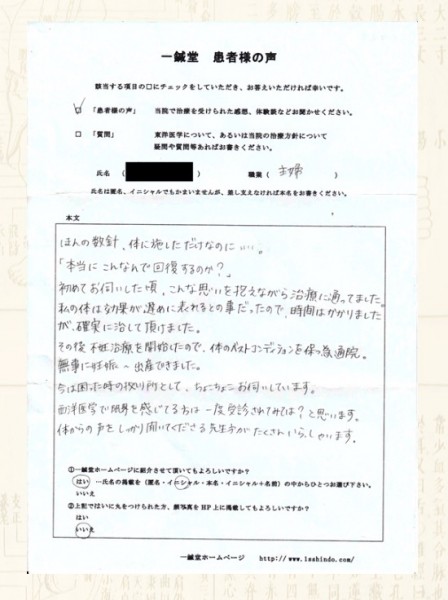 一鍼堂 患者様の声
該当する項目の□にチェックをしていただき、お答えいただければ幸いです。
「患者様の声」 当院で治療を受けられた感想、体験談などお聞かせください。
□ 「質問」 東洋医学について、あるいは当院の治療方針について
疑問や質問等あればお書きください。
氏名 ( ) 職業 ( 主婦 )
氏名は匿名、イニシャルでもかまいませんが、差し支えなければ本名をお書きください。
本文
ほんの数針、体に施しただけなのに…。
「本当にこんなんで回復するのか?」
初めてお伺いした頃、こんな思いを抱えながら治療に通ってました。
私の体は効果が遅めに表れるとの事だったので、時間はかかりました
が、確実に治して頂けました。
その後不妊治療を開始したので、体のベストコンディションを保つ為通院。
無事に妊娠〜出産できました。
今は困った時の救い所として、ちょこちょこお伺いしています。
西洋医学で限界を感じてる方は一度受診されてみては?と思います。
体からの声をしっかり聞いてくださる先生方がたくさんいらっしゃいます。
①一鍼堂ホームページに紹介させて頂いてもよろしいですか?
はい …氏名の掲載を(匿名・イニシャル・本名・イニシャル+名前)の中からひとつお選び下さい。
いいえ
②上記ではいに丸をつけられた方、顔写真をHP上に掲載してもよろしいですか?
はい
いいえ
一鍼堂ホームページ http://www.isshindo.com/